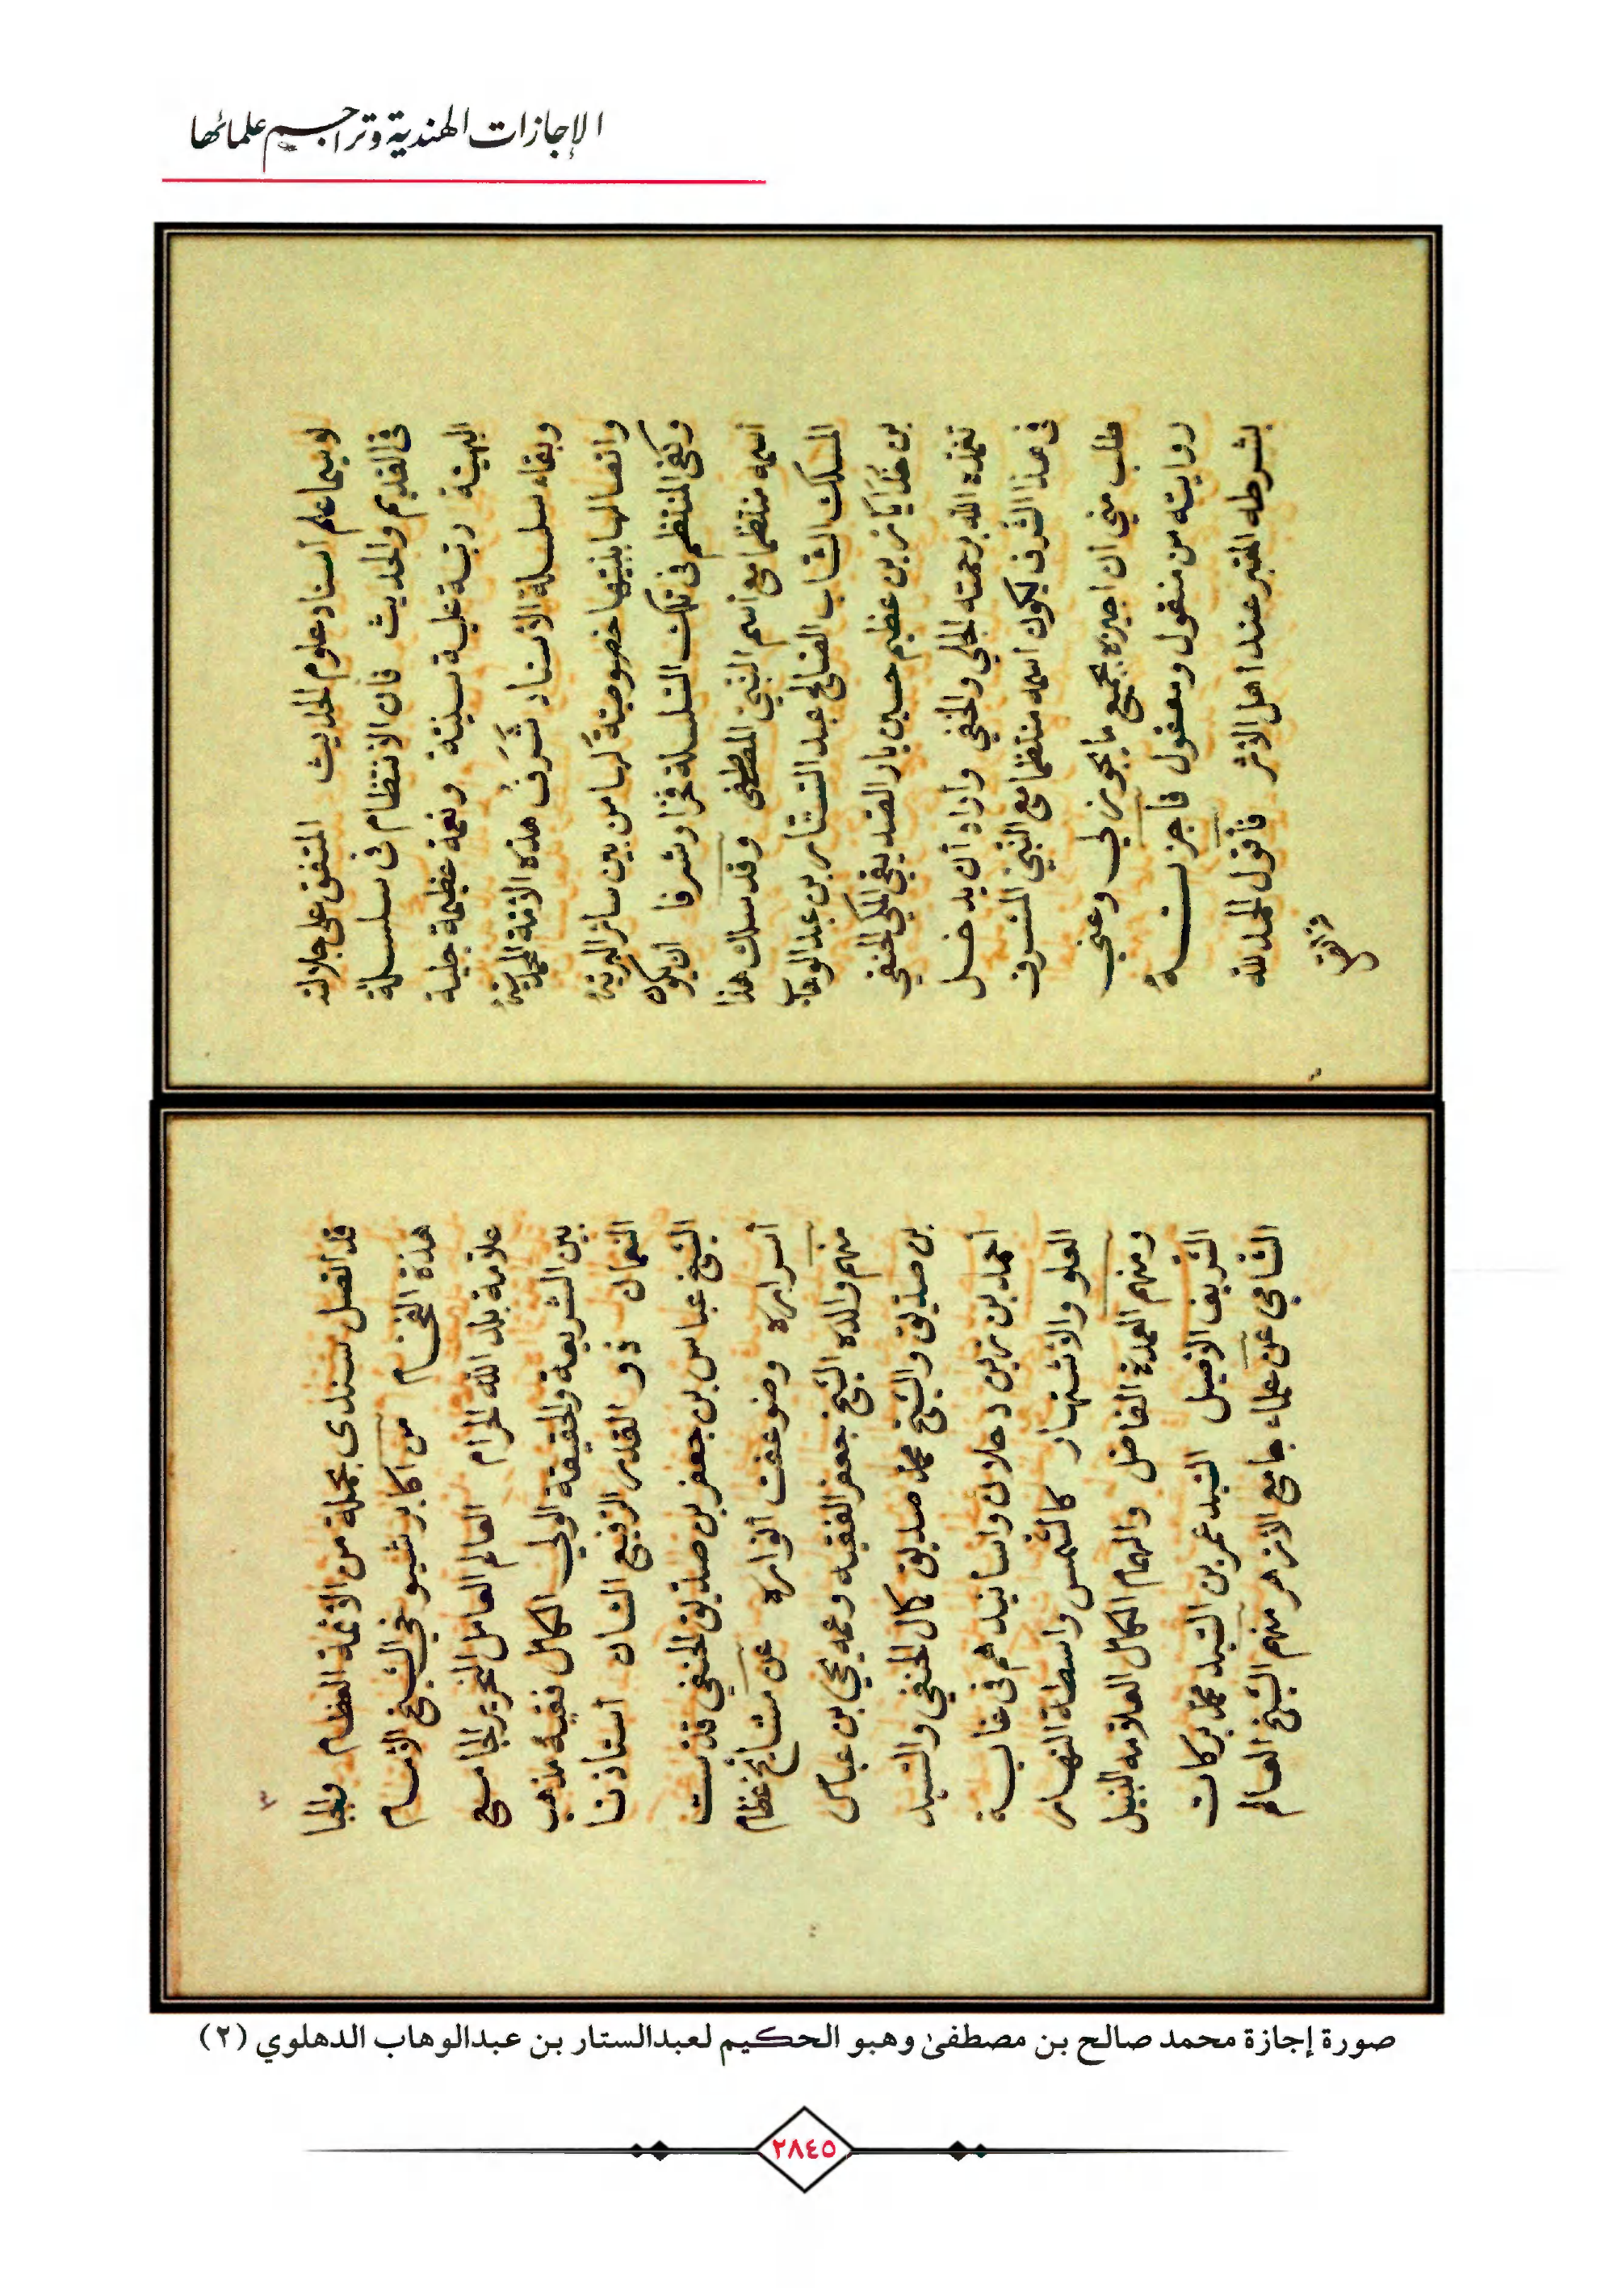 الإجازات الهندية وتراجم علمائها
لاسيما علم اسناد علوم الحديث المتفق على جلالته
فى القديم والحديث فان الانتظام فى سلسلة
البهية رتبة علية سنية ونعمة عظيمة جلية
وبقاء سلسلة الاسناد شَرَفُ هذه الأمّة المحمديّة
واتصالها بنبيّها خصوصيّة لها من بين سائر البريّة
وكفى المنتظم فى تلك السّلسلة فخرا وشرفا أن يكون
اسمه منتظما مع اسم النّبيّ المصطفى وقد سلك هذا
المسلك الشّاب الصّالح عبد الستّار بن عبد الوهاب
بن خُدَايَار بن عظيم حسين يار الصّديقي المكي الحنفي
تغمّده الله برحمته الجلي والخفي وأراد أن يدخل
فى هذا الشّرف ليكون اسمه منتظما مع النّبيّ المشرف
طلب منّي ان اجيزه بجميع ما يجوز لي وعنّي
روايته من منقول ومعقول فأجزته
بشرطه المعتبر عند اهل الأثر فأقول الحمد لله
٣
قد اتّصل سندى بجملة من الأئمّة العظام
هذة الفخام من أكابر شيوخي الشّيخ الامام
علاّمة بلد الله الحرام العالم العامل النّحرير الجامع
بين الشّريعة والحقيقة الولي الكامل فقيه مذهب
النعمان ذو القدر الرّفيع الشان أستاذنا
الشّيخ عباس بن جعفر بن صدّيق الحنفي قدّست
أسراره وضوعفت أنواره عن مشايخ عظام
منهم والده الشّيخ جعفر الفقيه وعمه يحيى بن عباس
بن صدّيق والشّيخ محمّد صديق كمال الحنفي والسّيد
أحمد بن زين دحلان واسانيدهم فى غاية
العلو والاشتهار كالشّمس واسطة النهار
ومنهم العمدة الفاضل والهمام الكامل العلاّمه النّبيل
الشّريف الأصيل السّيد عمر بن السّيد محمّد بركات
الشّامي عن علماء جامع الأزهر منهم الشّيخ العالم
صورة إجازة محمد صالح بن مصطفىٰ وهبو الحكيم لعبدالستار بن عبدالوهاب الدهلوي (٢)
٢٨٤٥